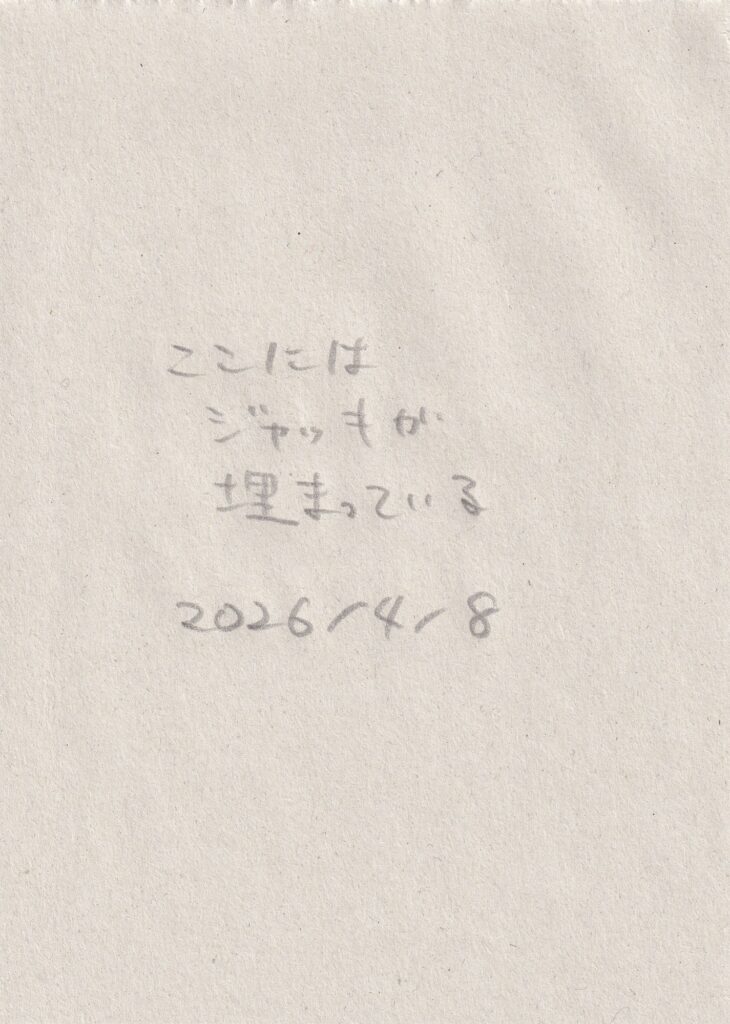 ここには
ジャッキが
埋まっている
2026/4/8